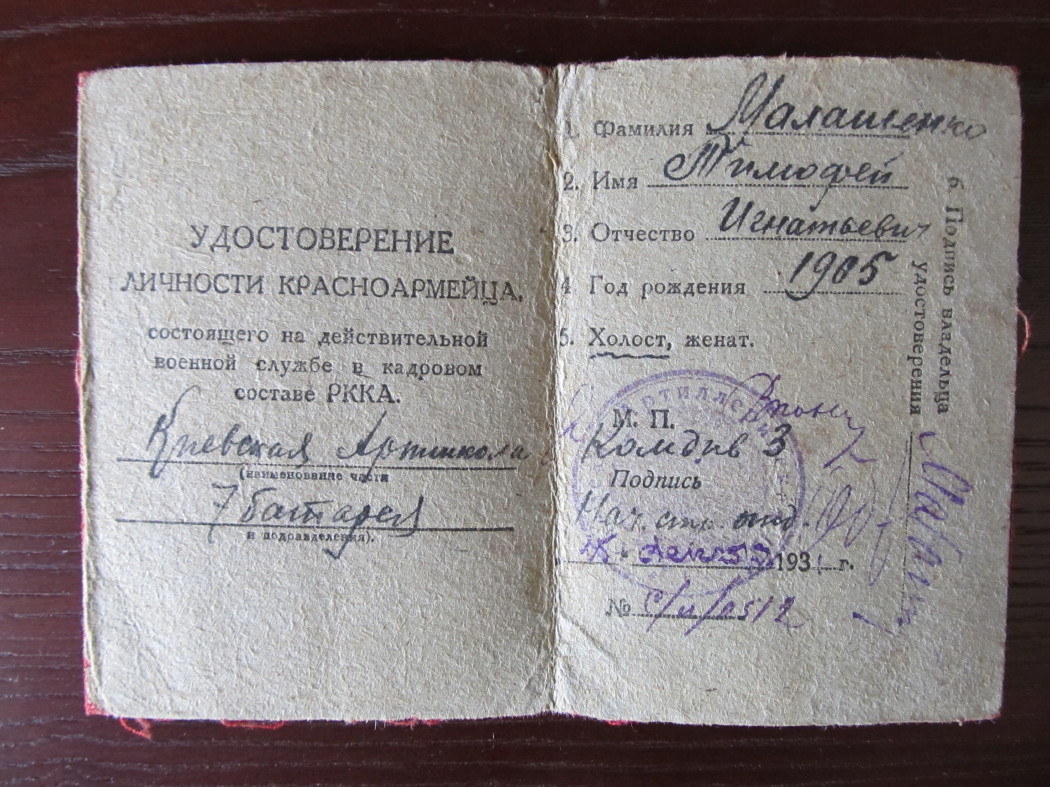 УДОСТОВЕРЕНИЕ
ЛИЧНОСТИ КРАСНОАРМЕЙЦА,
состоящего на действительной
военной службе в кадровом
составе РККА.
Киевская Артшкола
(наименование части
7 батарея
и подразделения).
1. Фамилия Малашенко
2. Имя Тимофей
3. Отчество Игнатьевич
4. Год рождения 1905
5. Холост, женат.
М. П.
Комдив 3
Подпись
Нач. отд.
193 г.
№ 0512
6. Подпись владельца
удостоверения